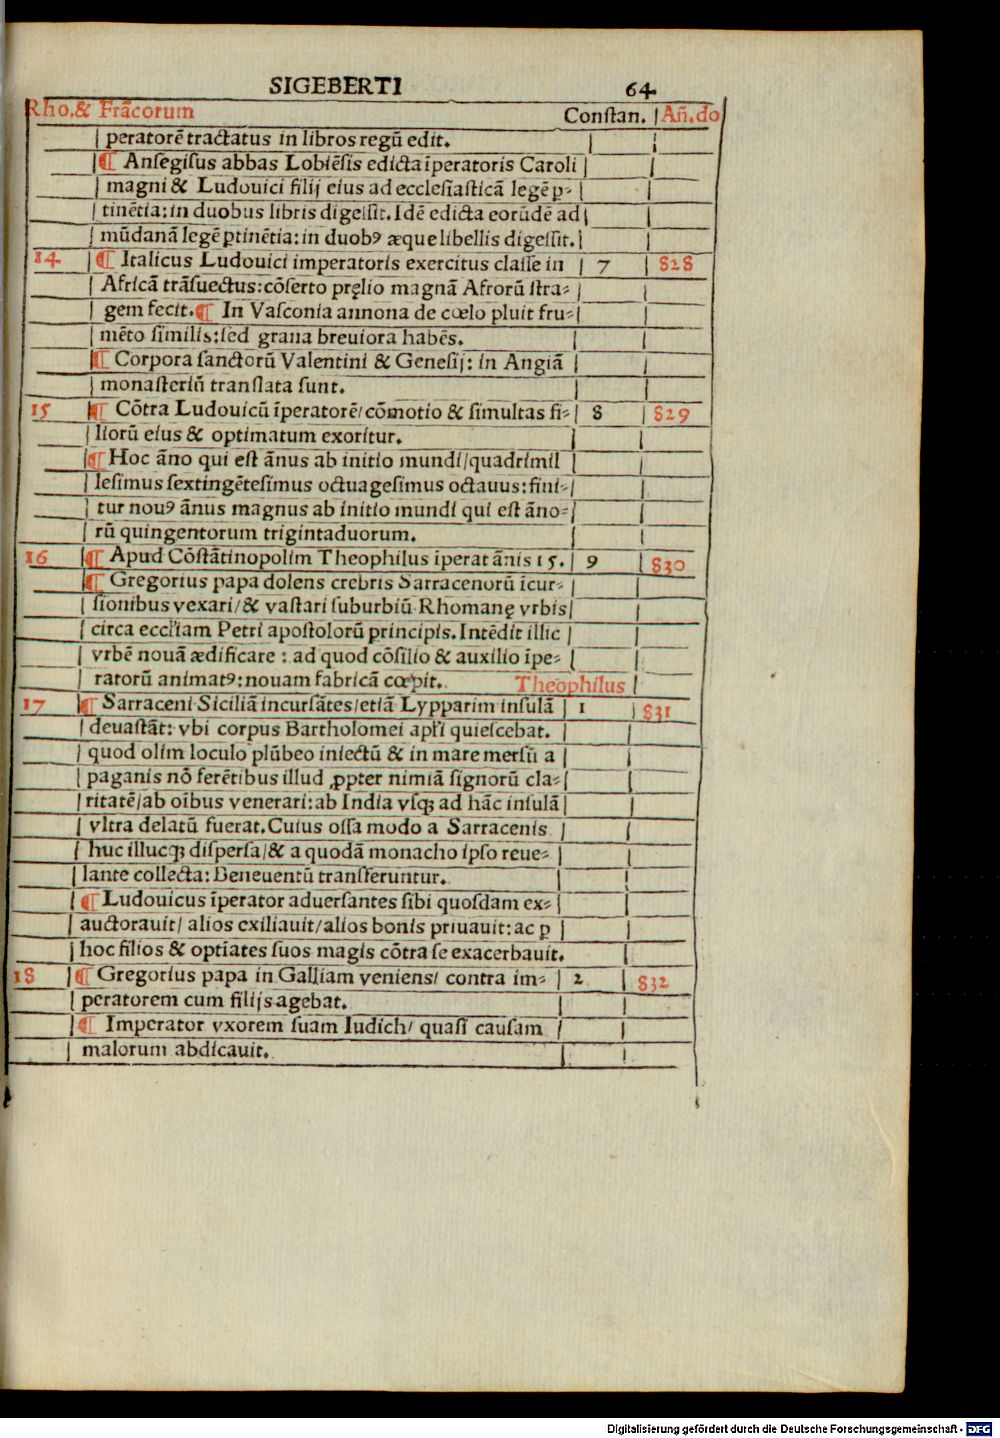 SIGEBERTI 64
Rho.& Frãcorum Constan. Añ.do
peratorē tractatus in libros regū edit.
¶ Ansegisus abbas Lobiēsis edicta īperatoris Caroli
magni & Ludouici filij eius ad ecclesiasticã legē ꝑ-
tinētia: in duobus libris digessit. Idē edicta eorūdē ad
mūdanã legē ꝑtinētia: in duobꝰ æque libellis digessit.
14 ¶ Italicus Ludouici imperatoris exercitus classe in 7 828
Africã trãsuectus: cōserto pręlio magnã Afrorū stra-
gem fecit. ¶ In Vasconia annona de cœlo pluit fru-
mēto similis: sed grana breuiora habēs.
¶ Corpora sanctorū Valentini & Genesij: in Angiã
monasteriū translata sunt.
15 ¶ Cōtra Ludouicū īperatorē/ cōmotio & simultas fi- 8 829
liorū eius & optimatum exoritur.
¶ Hoc ãno qui est ãnus ab initio mundi/ quadrimil
lesimus sextingētesimus octuagesimus octauus: fini-
tur nouꝰ ãnus magnus ab initio mundi qui est ãno-
rū quingentorum trigintaduorum.
16 ¶ Apud Cōstãtinopolim Theophilus īperat ãnis 15. 9 830
¶ Gregorius papa dolens crebris Sarracenorū īcur-
sionibus vexari/ & vastari suburbiū Rhomanę vrbis
circa eccl'iam Petri apostolorū principis. Intēdit illic
vrbē nouã ædificare: ad quod cōsilio & auxilio īpe-
ratorū animatꝰ: nouam fabricã cœpit. Theophilus
17 ¶ Sarraceni Siciliã incursãtes/ etiã Lypparim insulã 1 831
deuastãt: vbi corpus Bartholomei apl'i quiescebat.
quod olim loculo plūbeo iniectū & in mare mersū a
paganis nō ferētibus illud ꝓpter nimiã signorū cla-
ritatē/ ab oībus venerari: ab India vsqꝫ ad hãc insulã
vltra delatū fuerat. Cuius ossa modo a Sarracenis
huc illucqꝫ dispersa/ & a quodã monacho ipso reue-
lante collecta: Beneuentū transferuntur.
¶ Ludouicus īperator aduersantes sibi quosdam ex-
auctorauit/ alios exiliauit/ alios bonis priuauit: ac ꝑ
hoc filios & optīates suos magis cōtra se exacerbauit.
18 ¶ Gregorius papa in Galliam veniens/ contra im- 2 832
peratorem cum filijs agebat.
¶ Imperator vxorem suam Iudich/ quasi causam
malorum abdicauit.
Digitalisierung gefördert durch die Deutsche Forschungsgemeinschaft - DFG